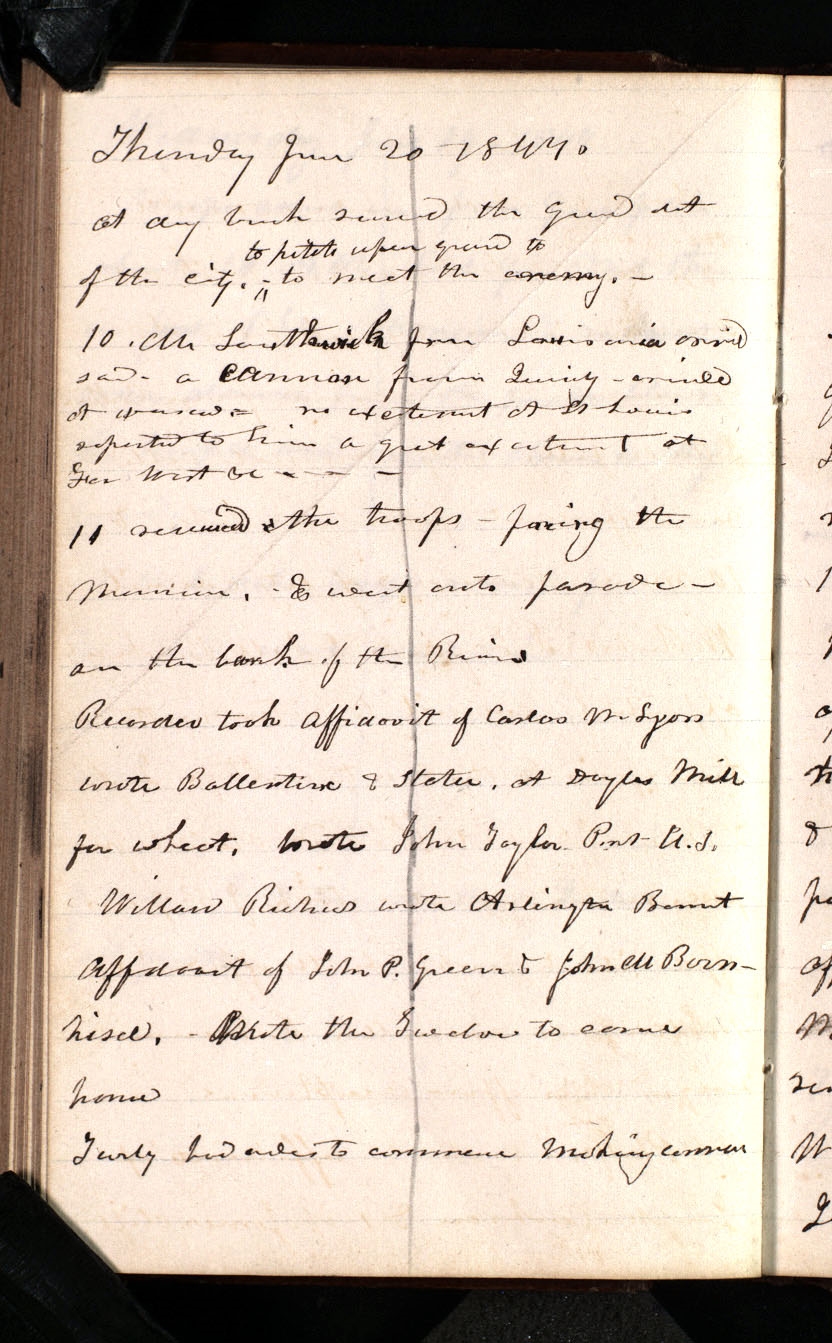 Thursday June 20 1844.
at day break reviewd the ground out
to pitch upon ground to
of the city. to meet the enemy. —
10. Mr Southwick from Louisiana arrivd
said - a cannon from Quincy - arrived
at warsaw = no excitement at St Louis
reported to him a great excitement at
Far West &c - - - -
11 reviewed the troops - facing the
Mansion, & went onto parade —
on the bank of the River
Recorder took affidavit of Carlos W. Lyon
wrote Ballentine & Slater, at Doyles Mill
for wheat. wrote John Taylor Prest U.S.
Willard Richards wrote Arlington Bennet
affidavit of John P. Green & John M Bern-
hisel. - Wrote the Twelve to come
home
Turly had orders to commence making cannon